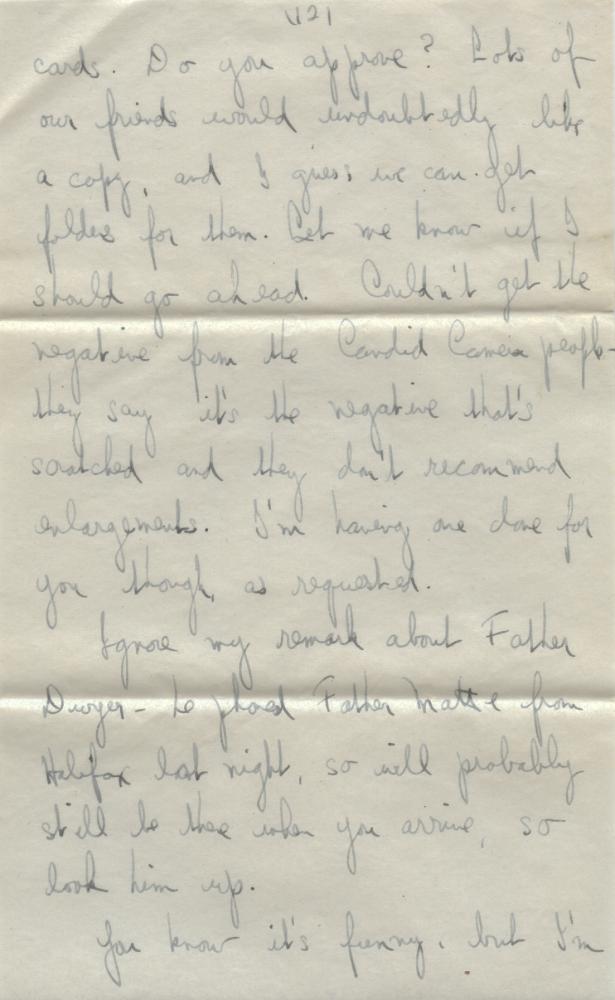 cards. Do you approve? Lots of
our friends would undoubtedly like
a copy, and I guess we can get
folders for them. Let me know if I
should go ahead. Couldn't get the
negative from the Candid Camera people -
they say it's the negative that's
scratched and they don't recommend
enlargements. I'm having one done for
you though, as requested.
Ignore my remark about Father
Dwyer - he phoned Father from
Halifax last night, so will probably
still be there when you arrive, so
look him up.
You know it's funny, but I'm